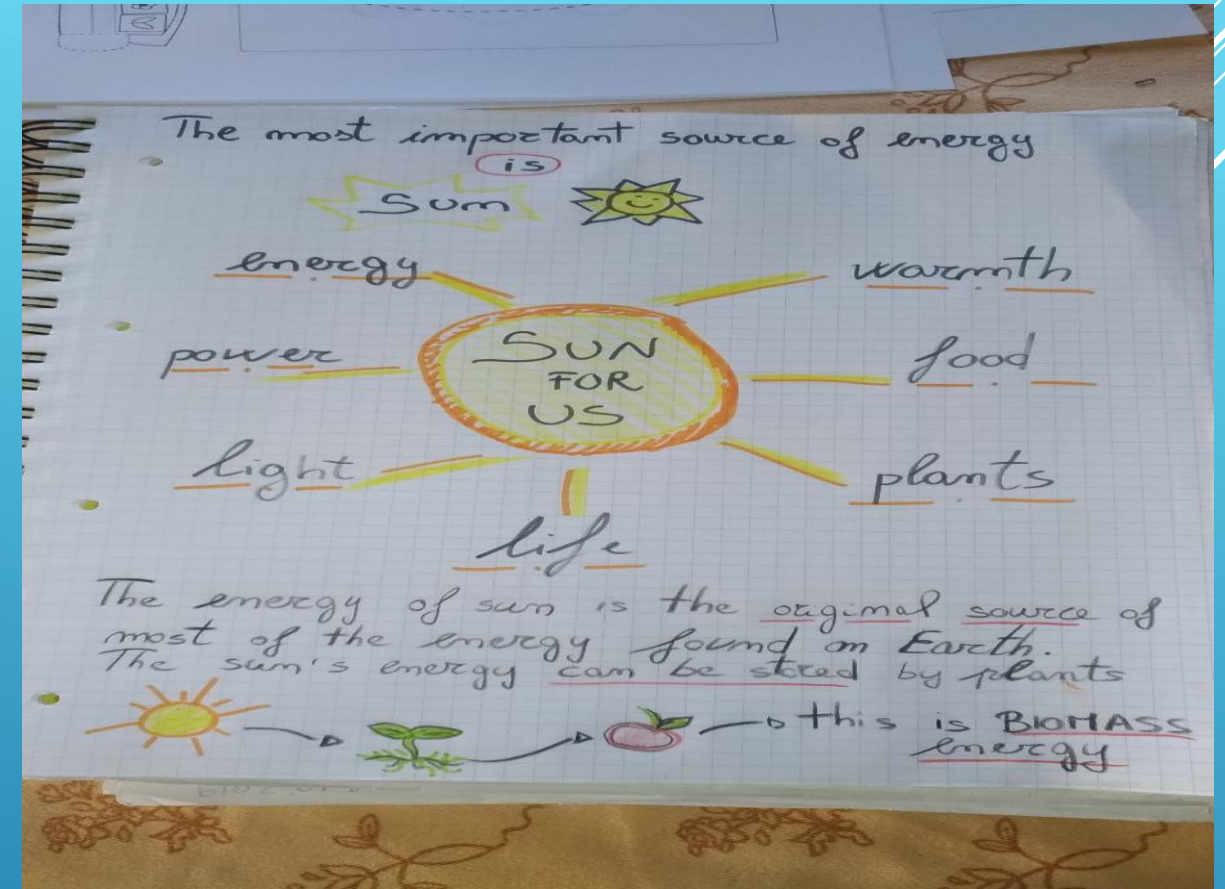 The most important source of energy
is
Sun
energy
warmth
power
SUN
FOR
US
food
light
plants
life
The energy of sun is the original source of
most of the energy found on Earth.
The sun's energy can be stored by plants
this is BIOMASS
energy